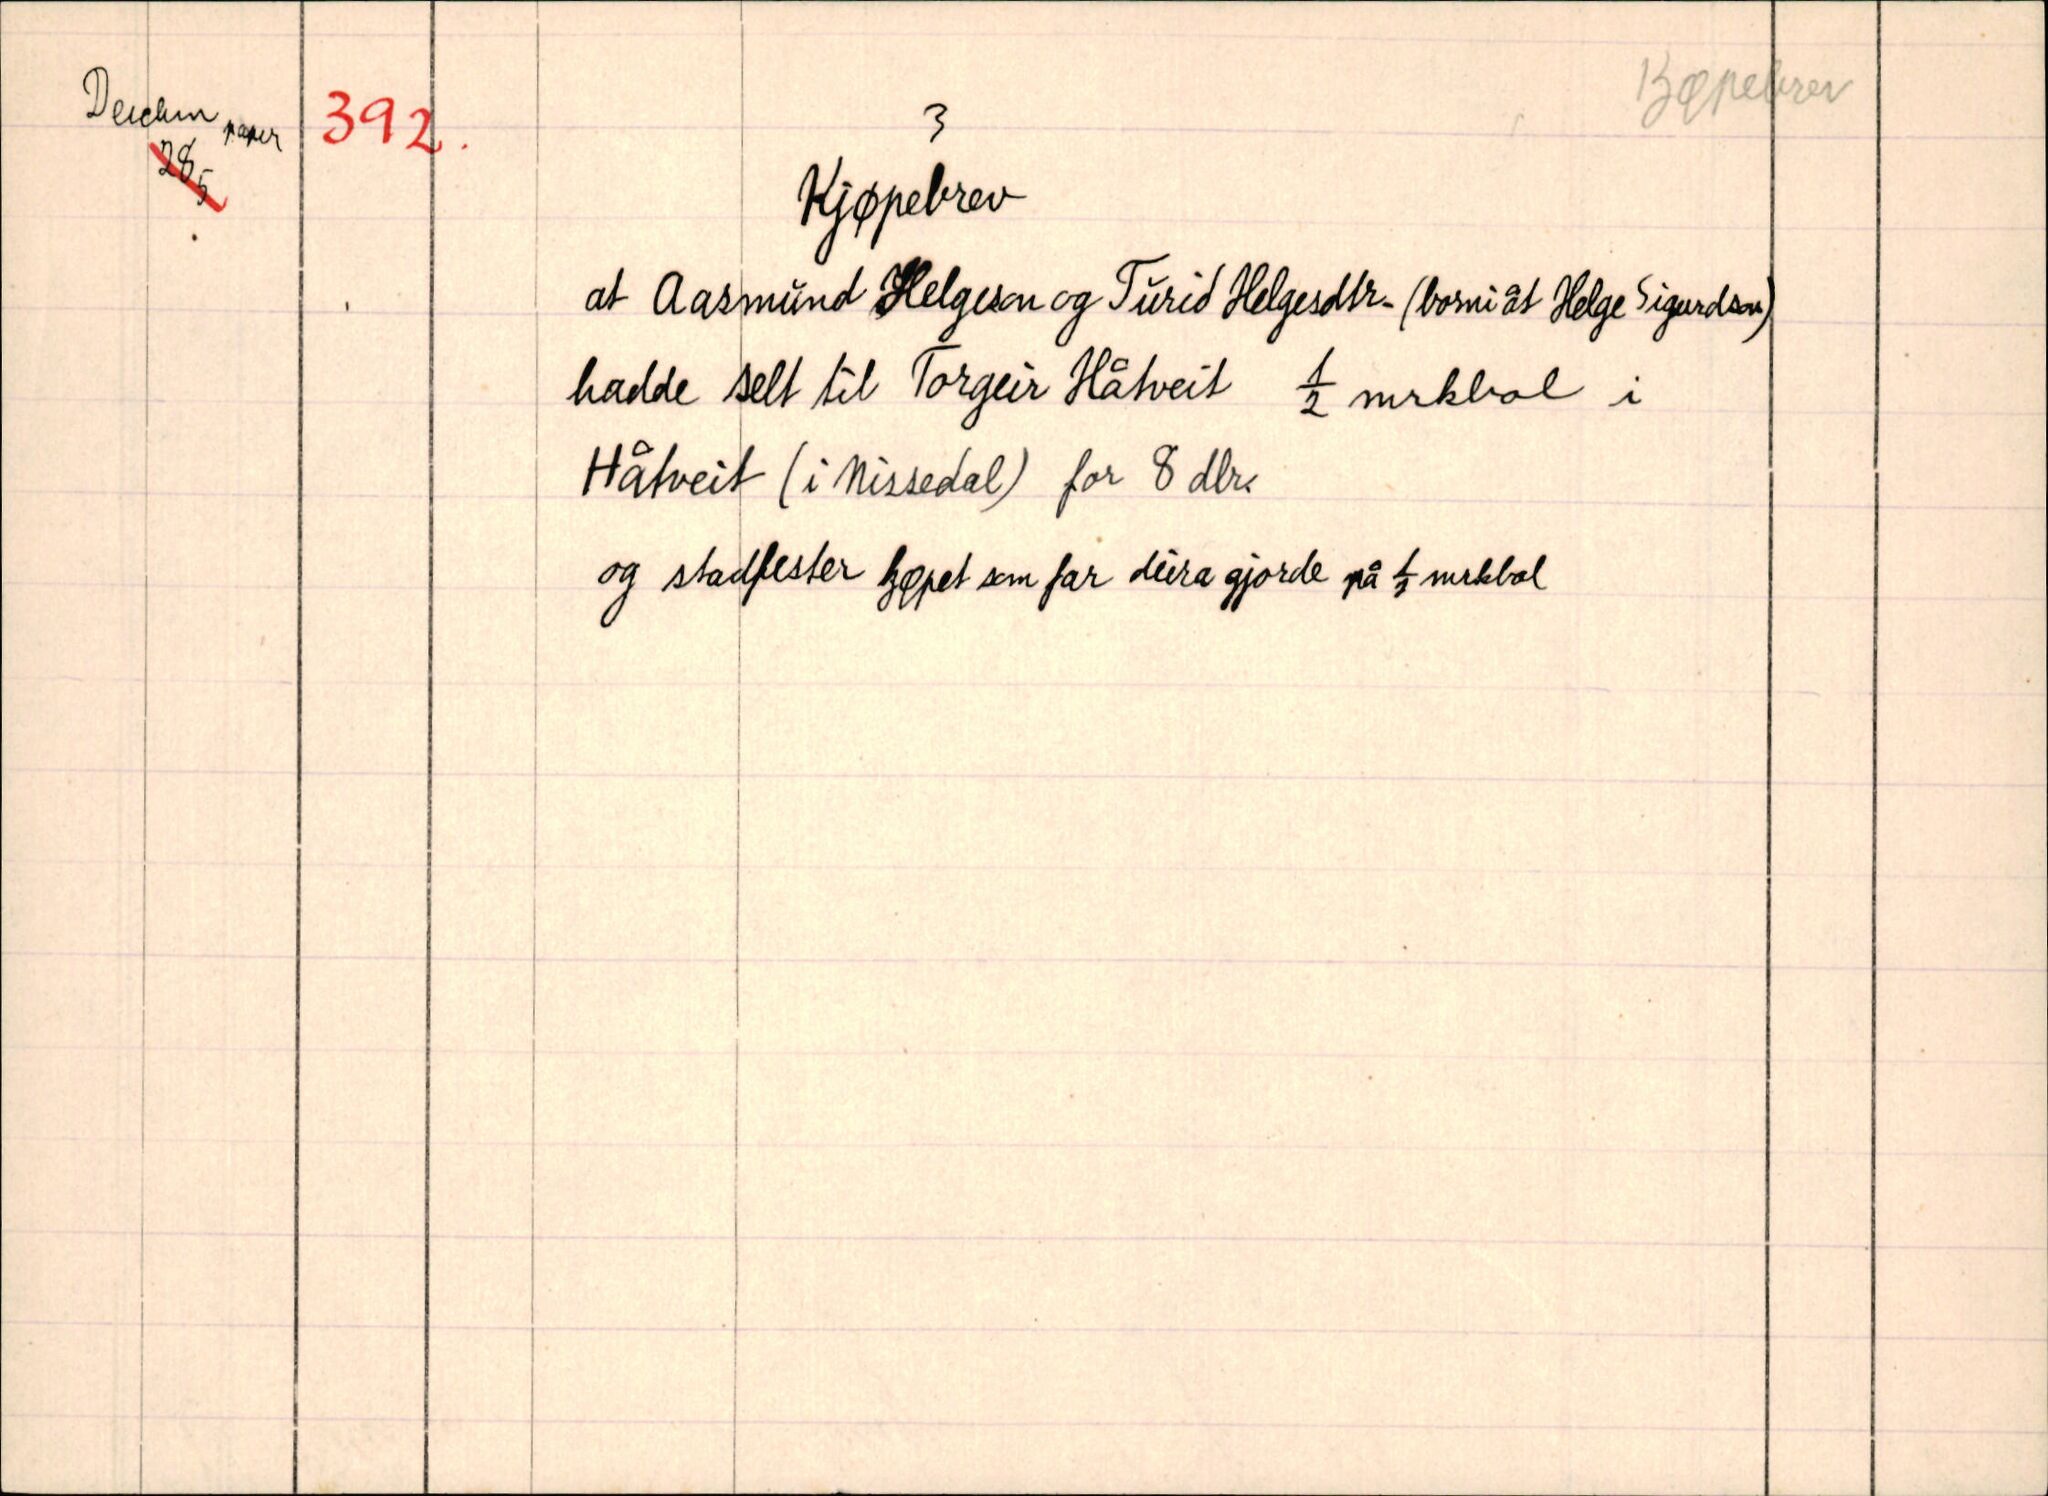 Deichm papir
28 5
392.
Kjøpebrev
3
Kjøpebrev
at Aasmund Helgeson og Turid Helgesdtr. (borni åt Helge Sigurdson)
hadde selt til Torgeir Håtveit 1/2 mrkbol i
Håtveit (i Nissedal) for 8 dlr.
og stadfester kjøpet som far deira gjorde på 1/2 mrkbol